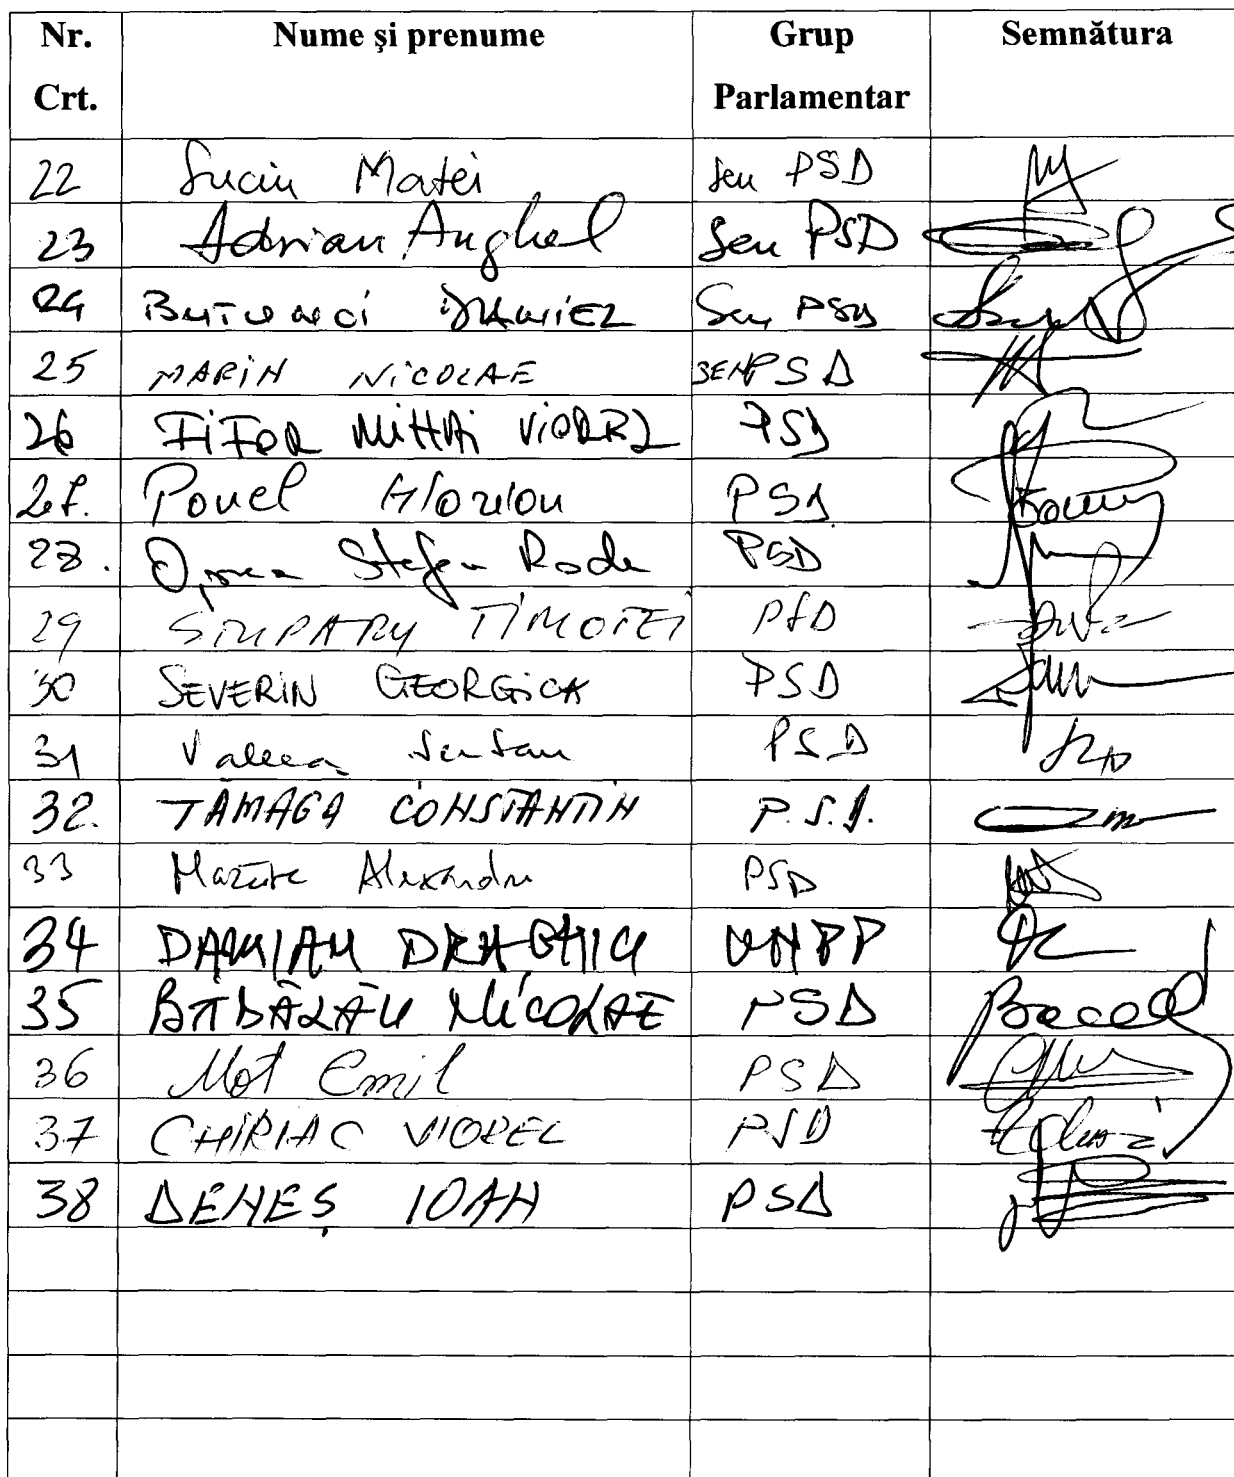 Nr. Crt. Nume şi prenume Grup Parlamentar Semnătura
22 Suciu Matei Sen PSD
23 Adrian Anghel Sen PSD
24 BUTUNOI DANIEL Sen PSD
25 MARIN NICOLAE SEN PSD
26 FIFOR MIHAI VIOREL PSD
27. Povel PSD
28. Oprea Stefan Radu PSD
29 TIMOTEI PSD
30 SEVERIN GEORGICA PSD
31 Valeca Serban PSD
32. TAMAGA CONSTANTIN P.S.D.
33 Mazăre Alexandru PSD
34 DAMIAN DRAGHICI UNPP
35 BĂDĂLĂU NICOLAE PSD
36 Mot Emil PSD
37 CHIRIAC VIOREL PSD
38 DENEŞ IOAN PSD